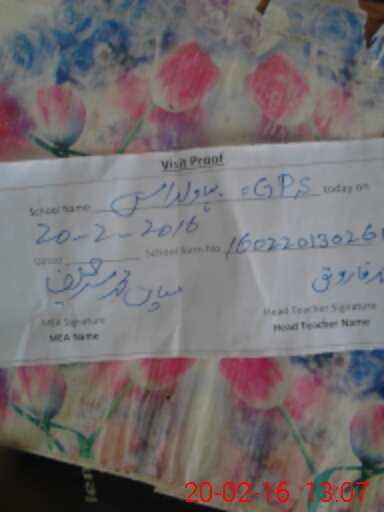 Visit Proof
School Name بہاولداس = GPS today on
20-2-2016
Dated School form No. 16022013026
میاں محمد شریف
فاروق
MEA Signature Head Teacher Signature
MEA Name Head Teacher Name
20-02-16 13:07